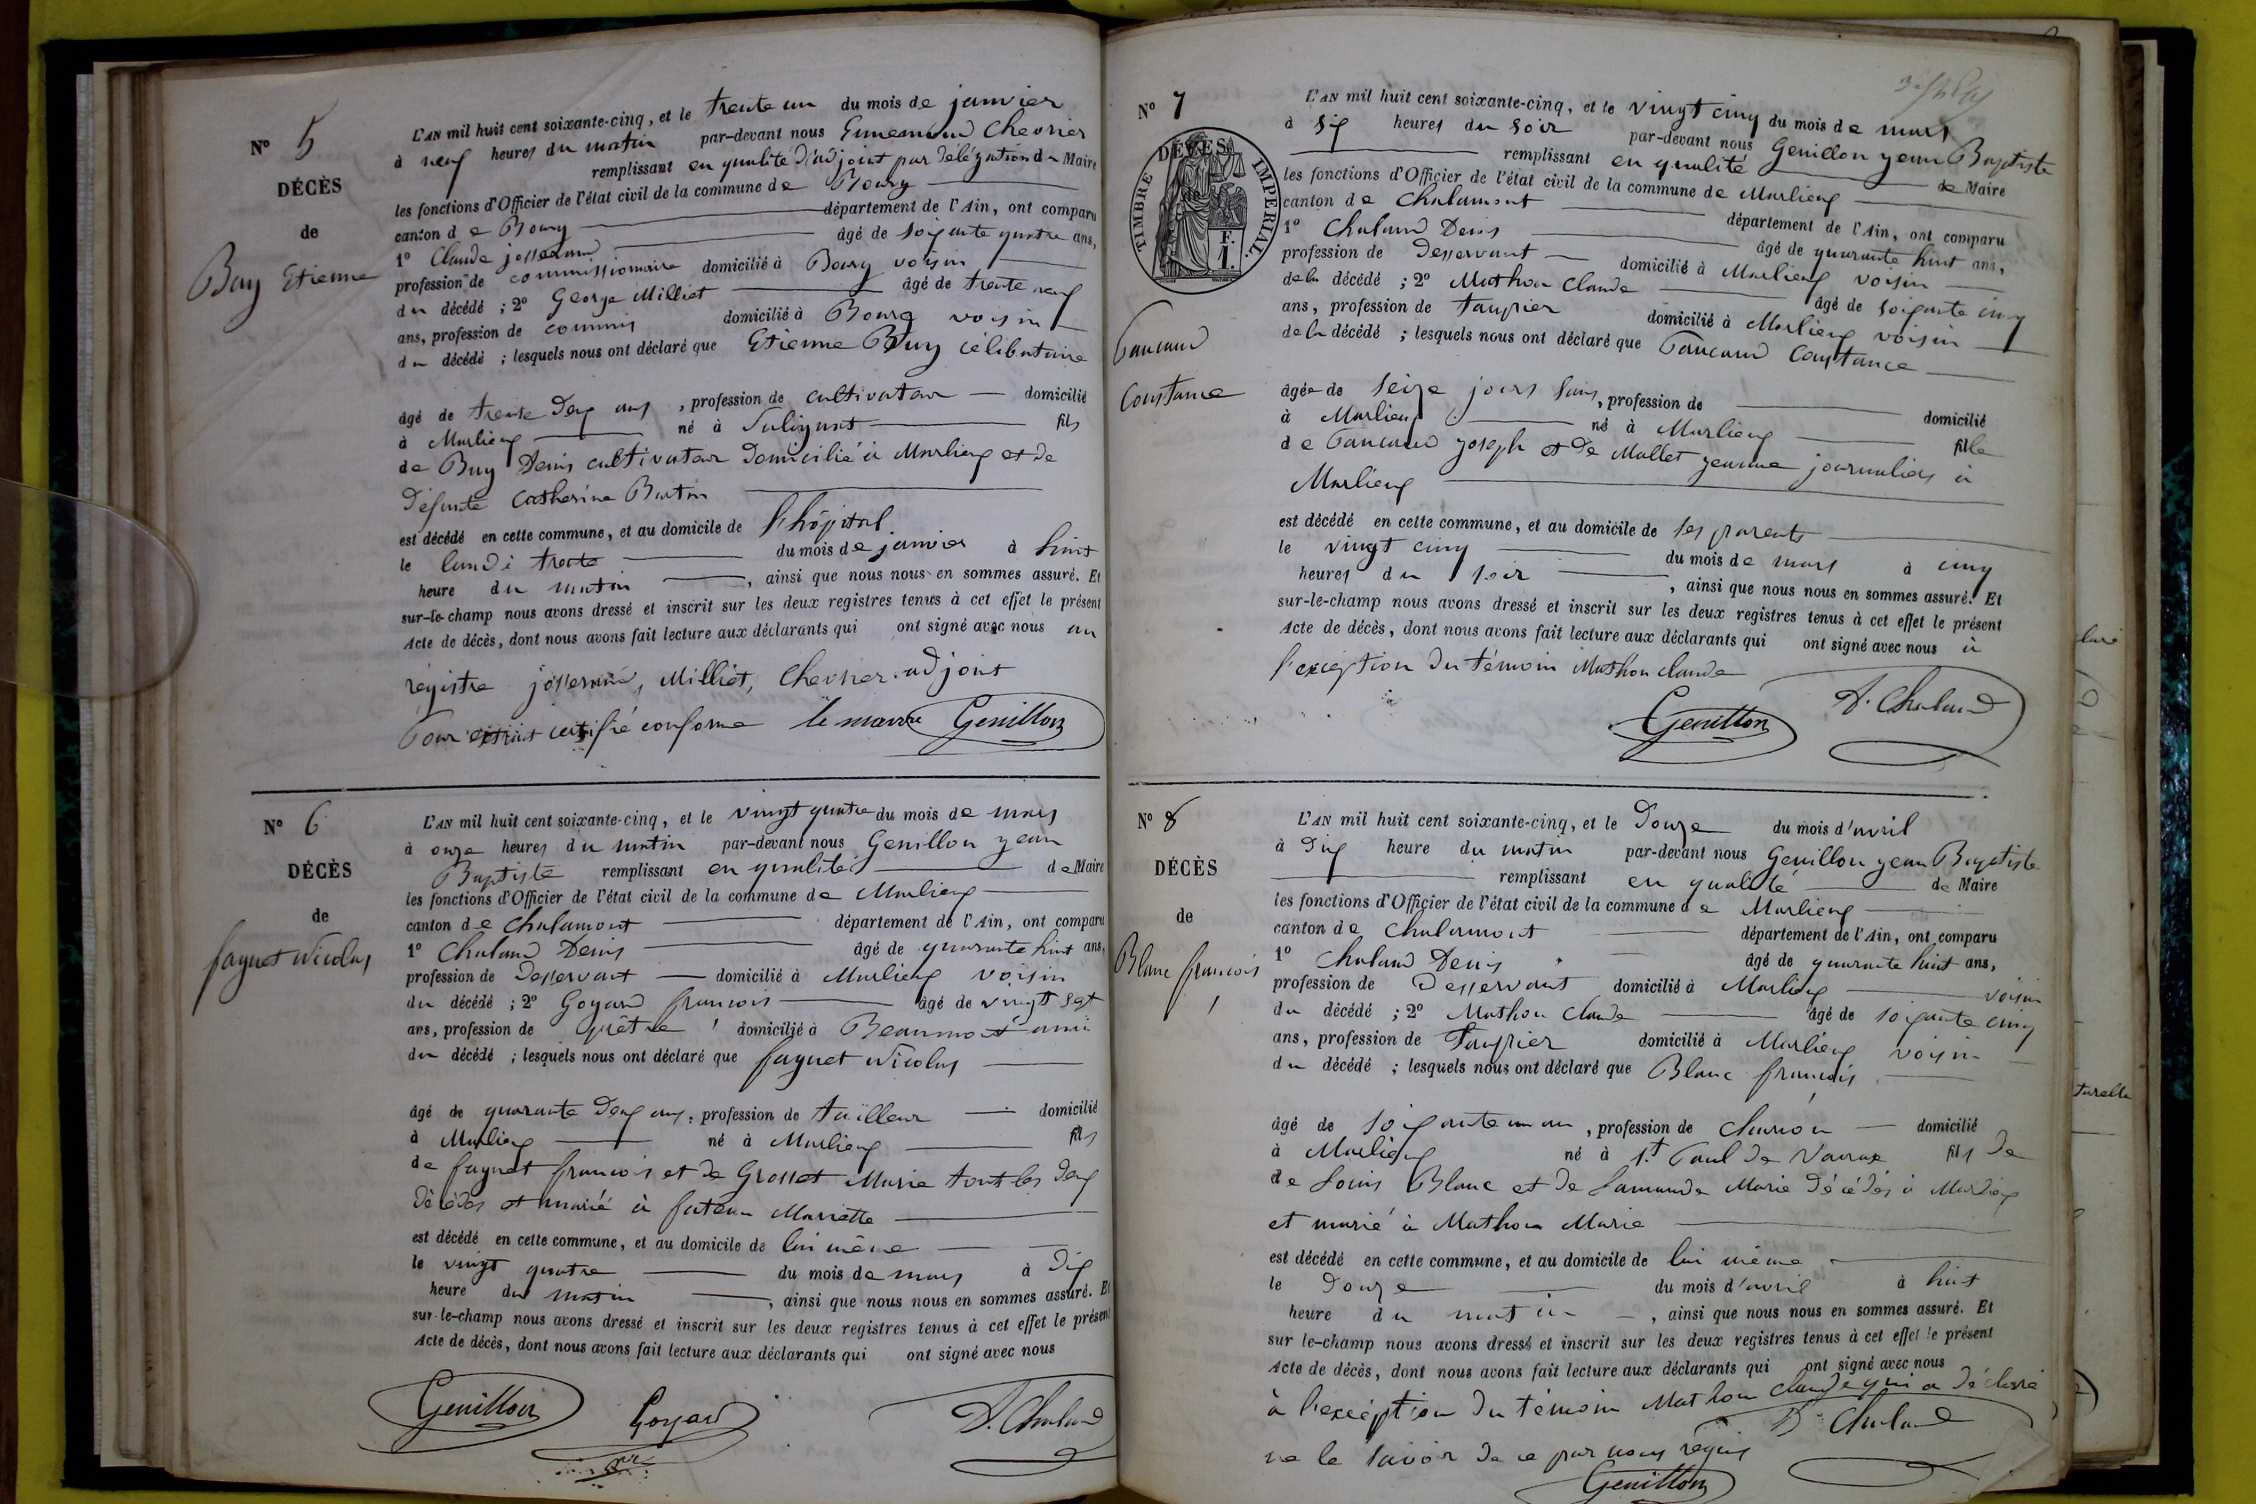 N° 5
DÉCÈS
de
Buy Etienne
L'AN mil huit cent soixante-cinq, et le trente un du mois de janvier
à neuf heures du matin par-devant nous Ennemond Chevrier
remplissant en qualité d'adjoint par délégation de Maire
les fonctions d'Officier de l'état civil de la commune de Bourg
canton de Bourg département de l'Ain, ont comparu
1° Claude josserand âgé de soixante quatre ans,
profession de commissionnaire domicilié à Bourg voisin
du décédé ; 2° George Milliet âgé de trente neuf
ans, profession de commis domicilié à Bourg voisin
du décédé ; lesquels nous ont déclaré que Etienne Buy célibataire
âgé de trente deux ans, profession de cultivateur domicilié
à Marlieux né à Sulignat fils
de Buy Denis cultivateur domicilié à Marlieux et de
défunte Catherine Burtin
est décédé en cette commune, et au domicile de l'hôpital
le lundi trente du mois de janvier à huit
heure du matin, ainsi que nous nous en sommes assuré. Et
sur-le-champ nous avons dressé et inscrit sur les deux registres tenus à cet effet le présent
Acte de décès, dont nous avons fait lecture aux déclarants qui ont signé avec nous au
régistre josserand, Milliet, Chevrier adjoint
Pour extrait certifié conforme le maire Genillon
N° 6
DÉCÈS
de
fayuet Nicolas
L'AN mil huit cent soixante-cinq, et le vingt quatre du mois de mars
à onze heures du matin par-devant nous Genillon jean
Baptiste remplissant en qualité de Maire
les fonctions d'Officier de l'état civil de la commune de Marlieux
canton de Chalamont département de l'Ain, ont comparu
1° Chaland Denis âgé de quarante huit ans,
profession de Desservant domicilié à Marlieux voisin
du décédé ; 2° Goyard francois âgé de vingt sept
ans, profession de prêtre domicilié à Beaumont ami
du décédé ; lesquels nous ont déclaré que fayuet Nicolas
âgé de quarante deux ans, profession de tailleur domicilié
à Marlieux né à Marlieux fils
de fayuet francois et de Grosset Marie tout les deux
décédés et marié à futeau Mariette
est décédé en cette commune, et au domicile de lui même
le vingt quatre du mois de mars à dix
heure du matin, ainsi que nous nous en sommes assuré. Et
sur-le-champ nous avons dressé et inscrit sur les deux registres tenus à cet effet le présent
Acte de décès, dont nous avons fait lecture aux déclarants qui ont signé avec nous
Genillon Goyard D. Chaland
N° 7
TIMBRE IMPERIAL
DÉCÈS
F. 1.
Paucaud
Constance
L'AN mil huit cent soixante-cinq, et le vingt cinq du mois de mars
à six heures du soir par-devant nous Genillon jean Baptiste
remplissant en qualité de Maire
les fonctions d'Officier de l'état civil de la commune de Marlieux
canton de Chalamont département de l'Ain, ont comparu
1° Chaland Denis âgé de quarante huit ans,
profession de Desservant domicilié à Marlieux voisin
de la décédé ; 2° Mathon Claude âgé de soixante cinq
ans, profession de taupier domicilié à Marlieux voisin
de la décédé ; lesquels nous ont déclaré que Paucaud Constance
âgée de seize jours sans, profession de domicilié
à Marlieux né à Marlieux fille
de Paucaud joseph et de Mallet jeanne journaliers à
Marlieux
est décédé en cette commune, et au domicile de ses parents
le vingt cinq du mois de mars à cinq
heures du soir, ainsi que nous nous en sommes assuré. Et
sur-le-champ nous avons dressé et inscrit sur les deux registres tenus à cet effet le présent
Acte de décès, dont nous avons fait lecture aux déclarants qui ont signé avec nous à
l'exception du témoin Mathon claude
Genillon D. Chaland
N° 8
DÉCÈS
de
Blanc francois
L'AN mil huit cent soixante-cinq, et le Douze du mois d'avril
à dix heure du matin par-devant nous Genillon jean Baptiste
remplissant en qualité de Maire
les fonctions d'Officier de l'état civil de la commune de Marlieux
canton de Chalamont département de l'Ain, ont comparu
1° Chaland Denis âgé de quarante huit ans,
profession de Desservant domicilié à Marlieux voisin
du décédé ; 2° Mathon Claude âgé de soixante cinq
ans, profession de Taupier domicilié à Marlieux voisin
du décédé ; lesquels nous ont déclaré que Blanc francois
âgé de soixante un an, profession de charron domicilié
à Marlieux né à St Paul de Varax fils de
de Louis Blanc et de Lamande Marie décédés à Marlieux
et marié à Mathon Marie
est décédé en cette commune, et au domicile de lui même
le Douze du mois d'avril à huit
heure du matin, ainsi que nous nous en sommes assuré. Et
sur le-champ nous avons dressé et inscrit sur les deux registres tenus à cet effet le présent
Acte de décès, dont nous avons fait lecture aux déclarants qui ont signé avec nous
à l'exception du témoin Mathon claude qui a déclaré
ne le savoir de ce par nous réquis D. Chaland
Genillon